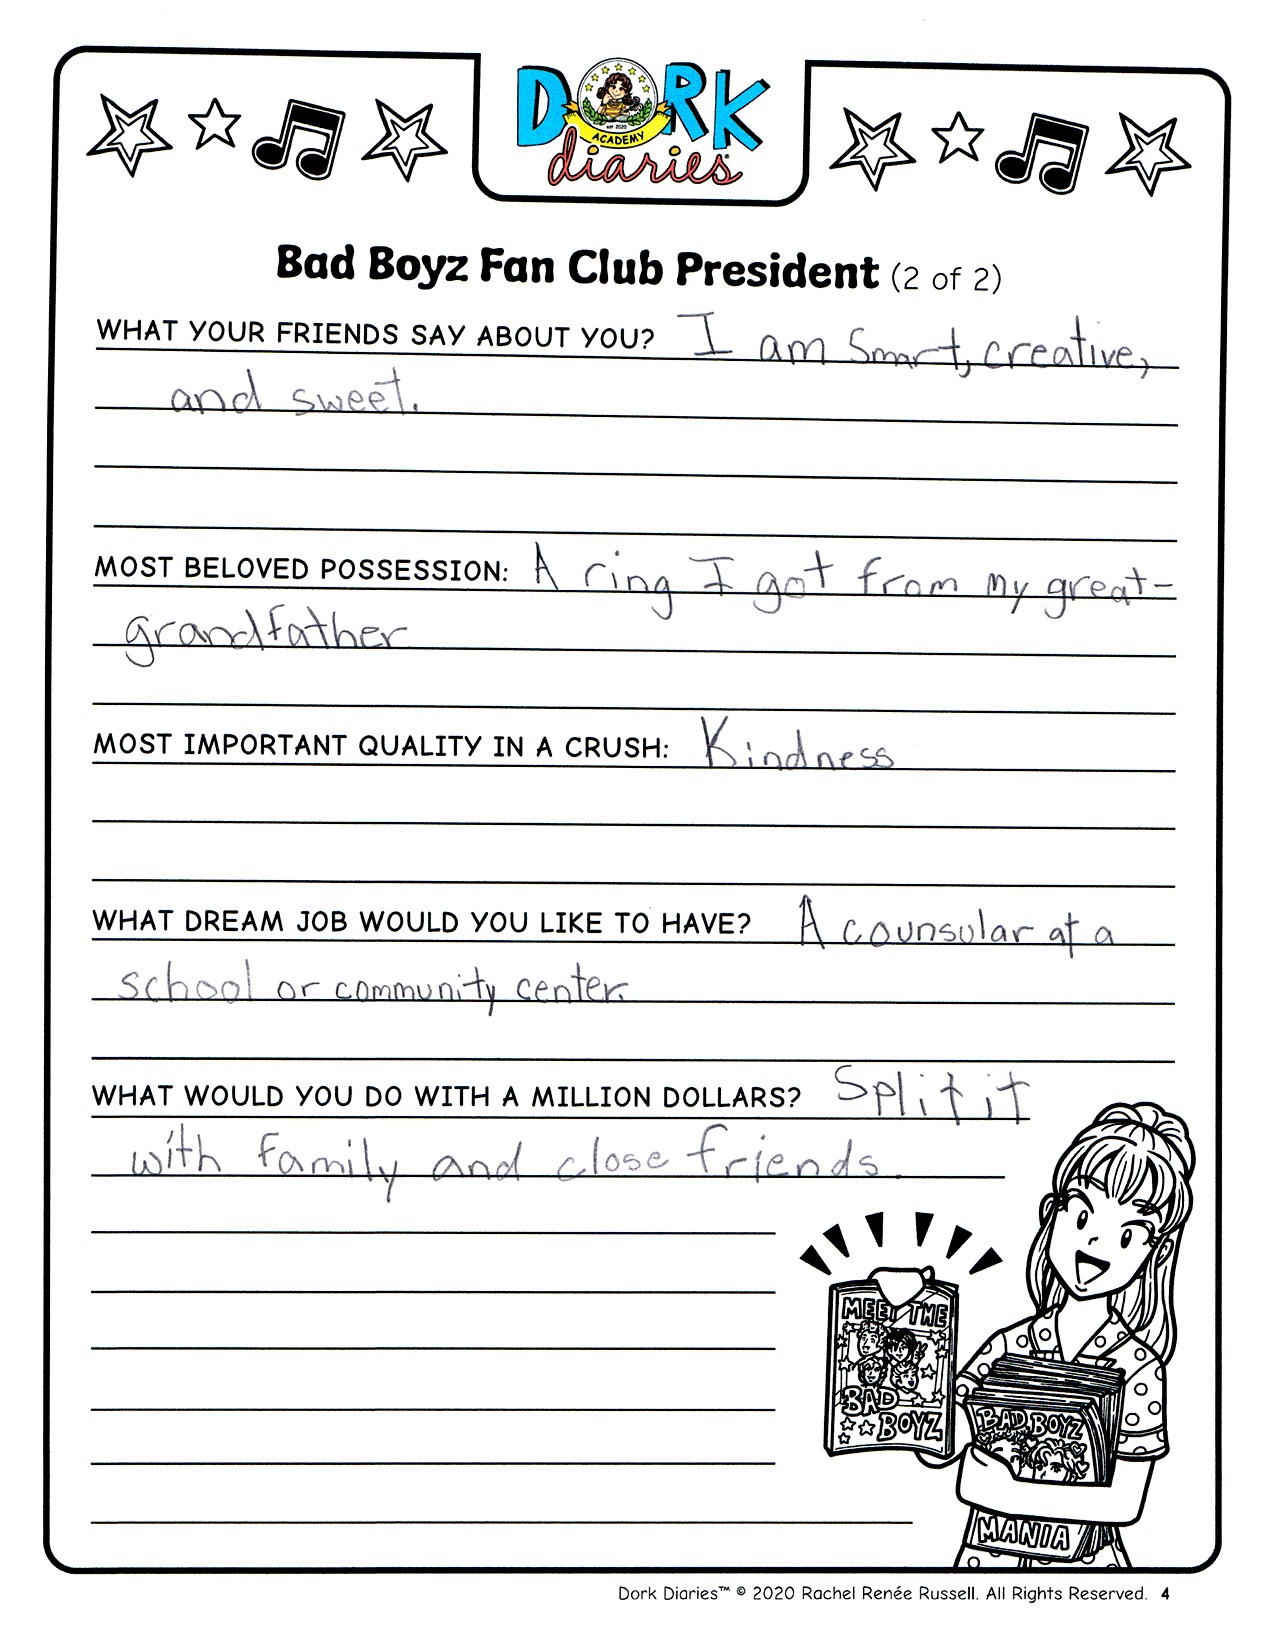 DORK
EST 2020
ACADEMY
diaries
Bad Boyz Fan Club President (2 of 2)
WHAT YOUR FRIENDS SAY ABOUT YOU? I am smart, creative,
and sweet.
MOST BELOVED POSSESSION: A ring I got from my great-
grandfather
MOST IMPORTANT QUALITY IN A CRUSH: Kindness
WHAT DREAM JOB WOULD YOU LIKE TO HAVE? A counsular at a
school or community center.
WHAT WOULD YOU DO WITH A MILLION DOLLARS? Split it
with family and close friends.
MEET THE
BAD
BOYZ
BAD BOYZ
MANIA
Dork Diaries™ © 2020 Rachel Renée Russell. All Rights Reserved. 4